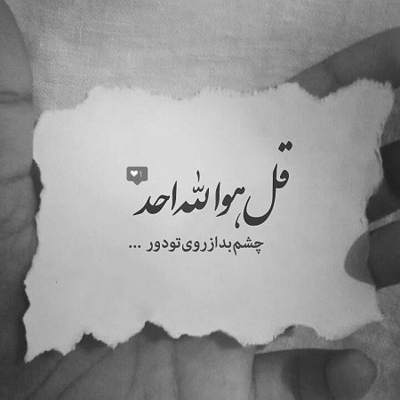 قل هوا لله احد
چشم بد از روی تو دور ...